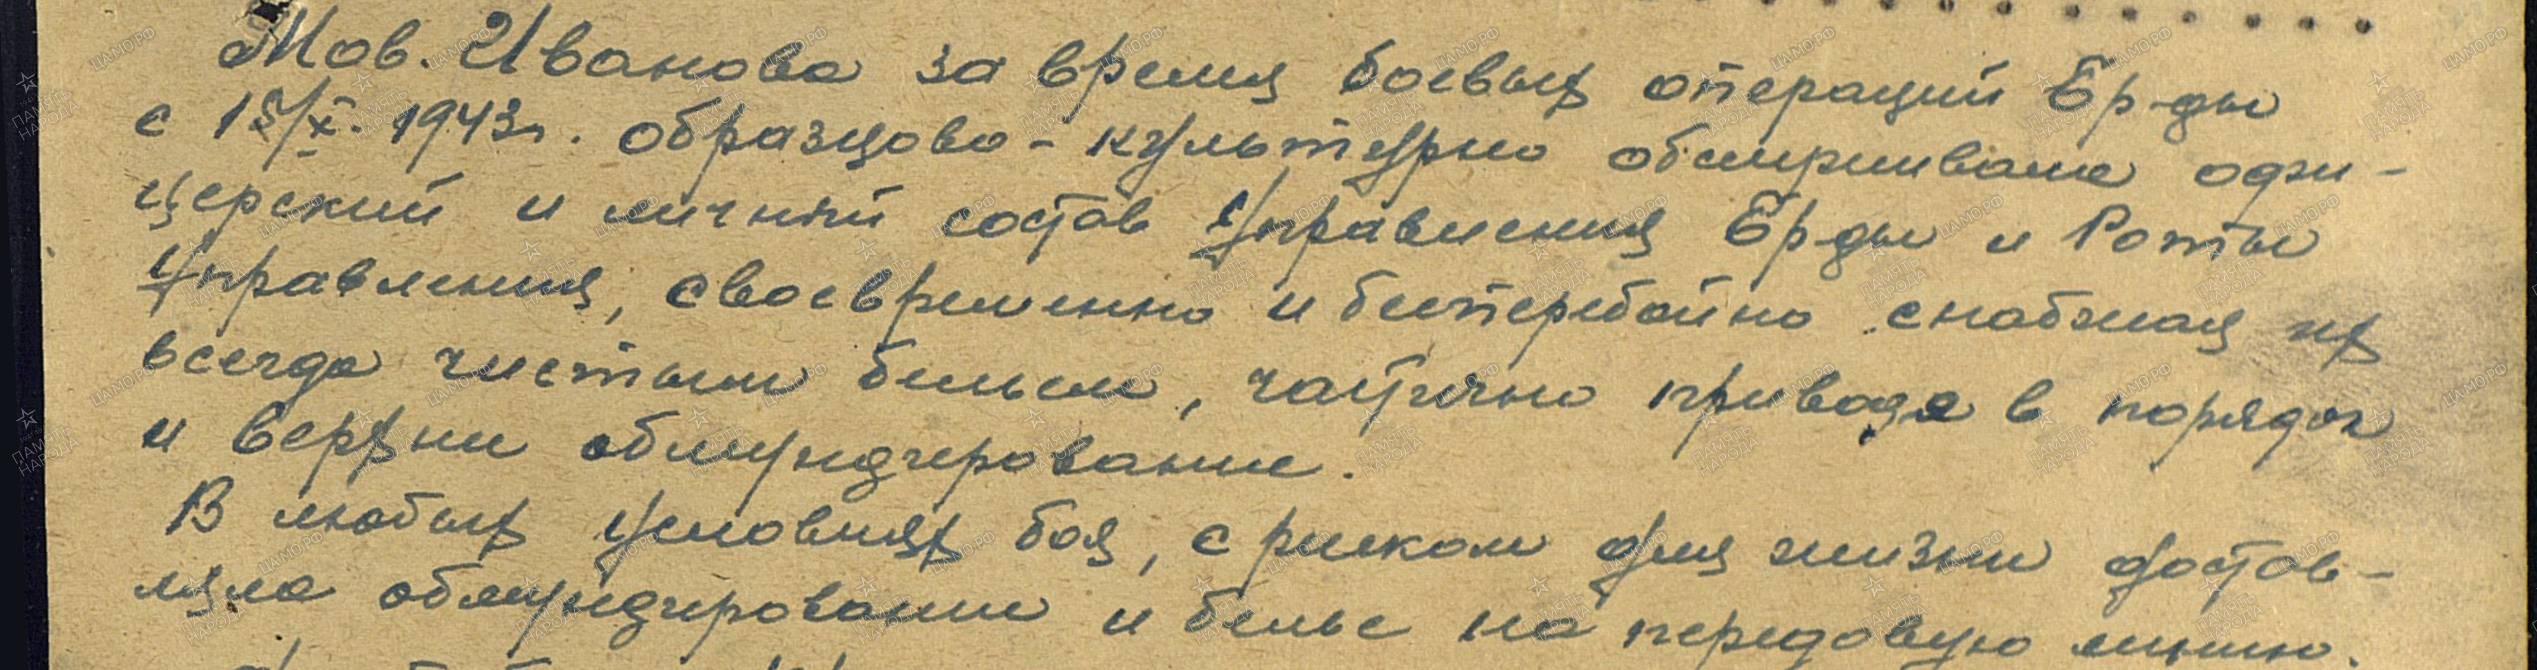 Тов. Иванова за время боевых операций Бр-ды
с 15/X. 1943г. образцово-культурно обслуживала офи-
церский и личный состав Управления Бр-ды и Роты
Управления, своевременно и бесперебойно снабжая их
всегда чистым бельем, частично приводя в порядок
и верхнее обмундирование.
В любых условиях боя, с риском для жизни достав-
ляла обмундирование и белье на передовую линию.